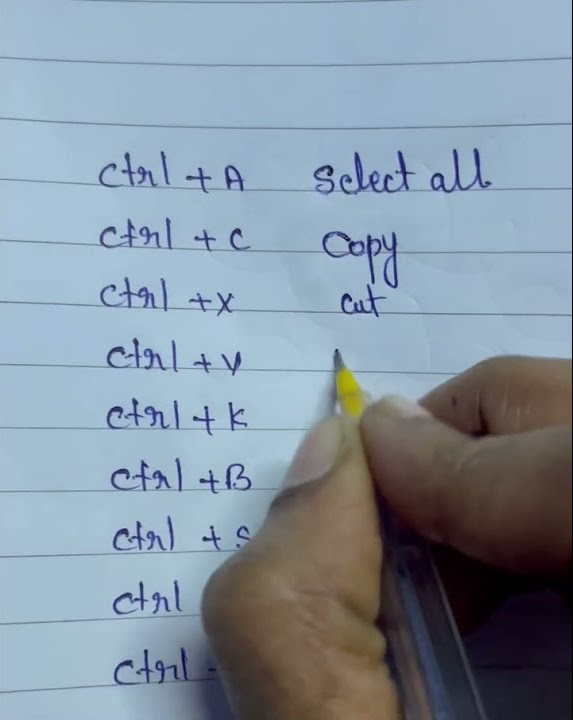 Ctrl + A Select all
Ctrl + C Copy
Ctrl + X Cut
Ctrl + V
Ctrl + K
Ctrl + B
Ctrl + S
Ctrl
Ctrl -